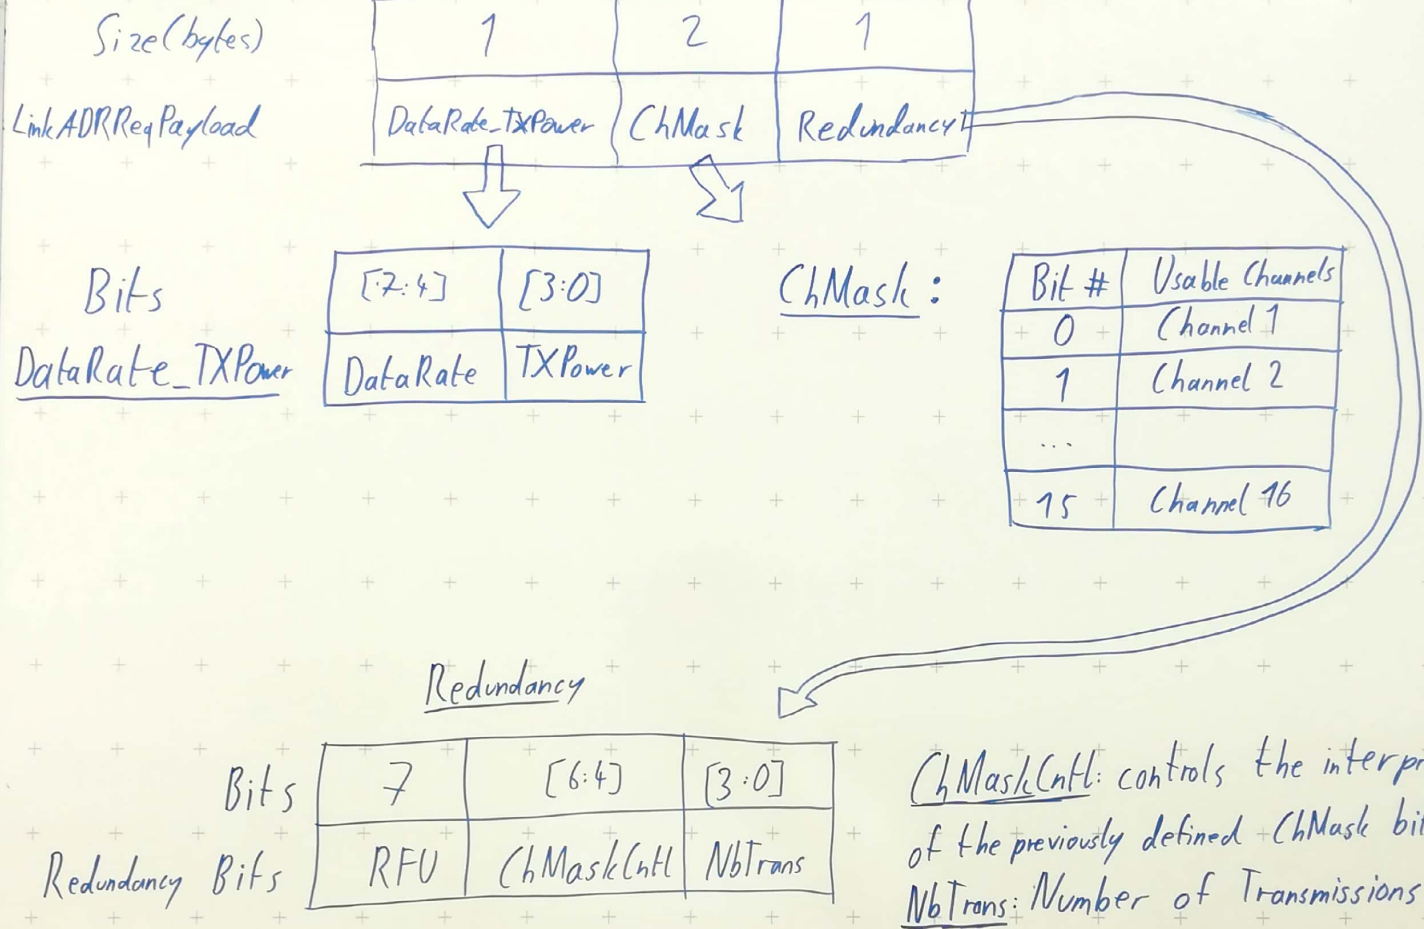 Size (bytes) 1 2 1
LinkADRReqPayload DataRate_TXPower ChMask Redundancy
Bits [7:4] [3:0]
DataRate_TXPower DataRate TXPower
ChMask:
Bit # Usable Channels
0 Channel 1
1 Channel 2
...
15 Channel 16
Redundancy
Bits 7 [6:4] [3:0]
Redundancy Bits RFU ChMaskCntl NbTrans
ChMaskCntl: controls the interpr
of the previously defined ChMask bit
NbTrans: Number of Transmissions